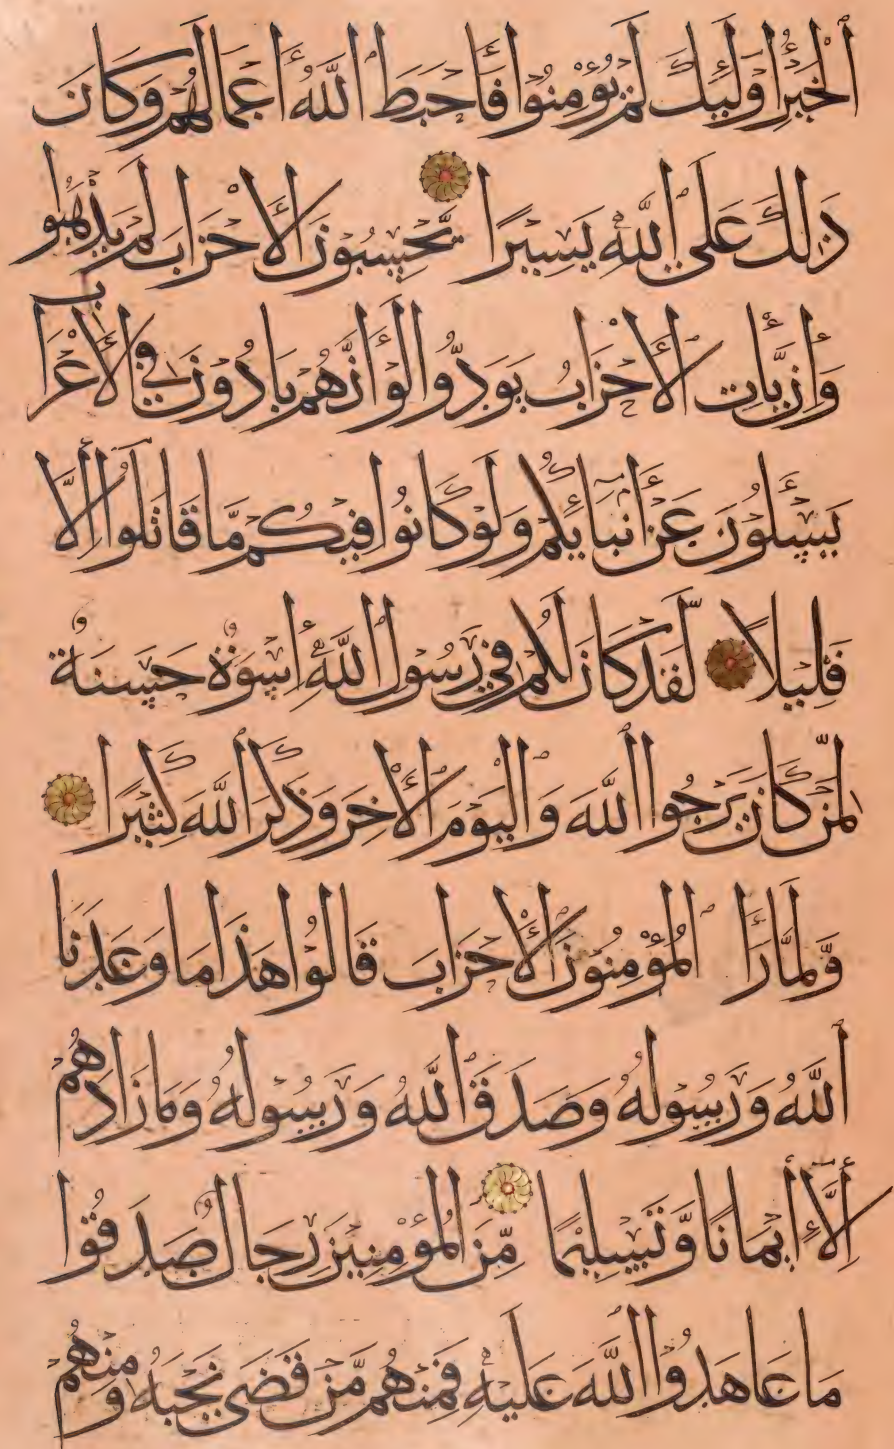 ٱلْخَيْرِ أُوْلَٰٓئِكَ لَمْ يُؤْمِنُوا۟ فَأَحْبَطَ ٱللَّهُ أَعْمَالَهُمْ وَكَانَ
ذَلِكَ عَلَى ٱللَّهِ يَسِيرًا يَحْسِبُونَ ٱلْأَحْزَابَ لَمْ يَذْهَبُوا
وَإِن يَأْتِ ٱلْأَحْزَابُ يَوَدُّوا لَوْ أَنَّهُم بَادُونَ فِي ٱلْأَعْرَابِ
يَسْـَٔلُونَ عَنْ أَنبَآئِكُمْ وَلَوْ كَانُوا فِيكُم مَّا قَاتَلُوٓا إِلَّا
قَلِيلًا لَّقَدْ كَانَ لَكُمْ فِي رَسُولِ ٱللَّهِ إِسْوَةٌ حَسَنَةٌ
لِّمَن كَانَ يَرْجُوا ٱللَّهَ وَٱلْيَوْمَ ٱلْأَخِرَ وَذَكَرَ ٱللَّهَ كَثِيرًا
وَلَمَّا رَأَ ٱلْمُؤْمِنُونَ ٱلْأَحْزَابَ قَالُوا هَذَا مَا وَعَدَنَا
ٱللَّهُ وَرَسُولُهُ وَصَدَقَ ٱللَّهُ وَرَسُولُهُ وَمَا زَادَهُمْ
إِلَّآ إِيمَانًا وَتَسْلِيمًا مِّنَ ٱلْمُؤْمِنِينَ رِجَالٌ صَدَقُوا
مَا عَاهَدُوا ٱللَّهَ عَلَيْهِ فَمِنْهُم مَّن قَضَى نَحْبَهُ وَمِنْهُم